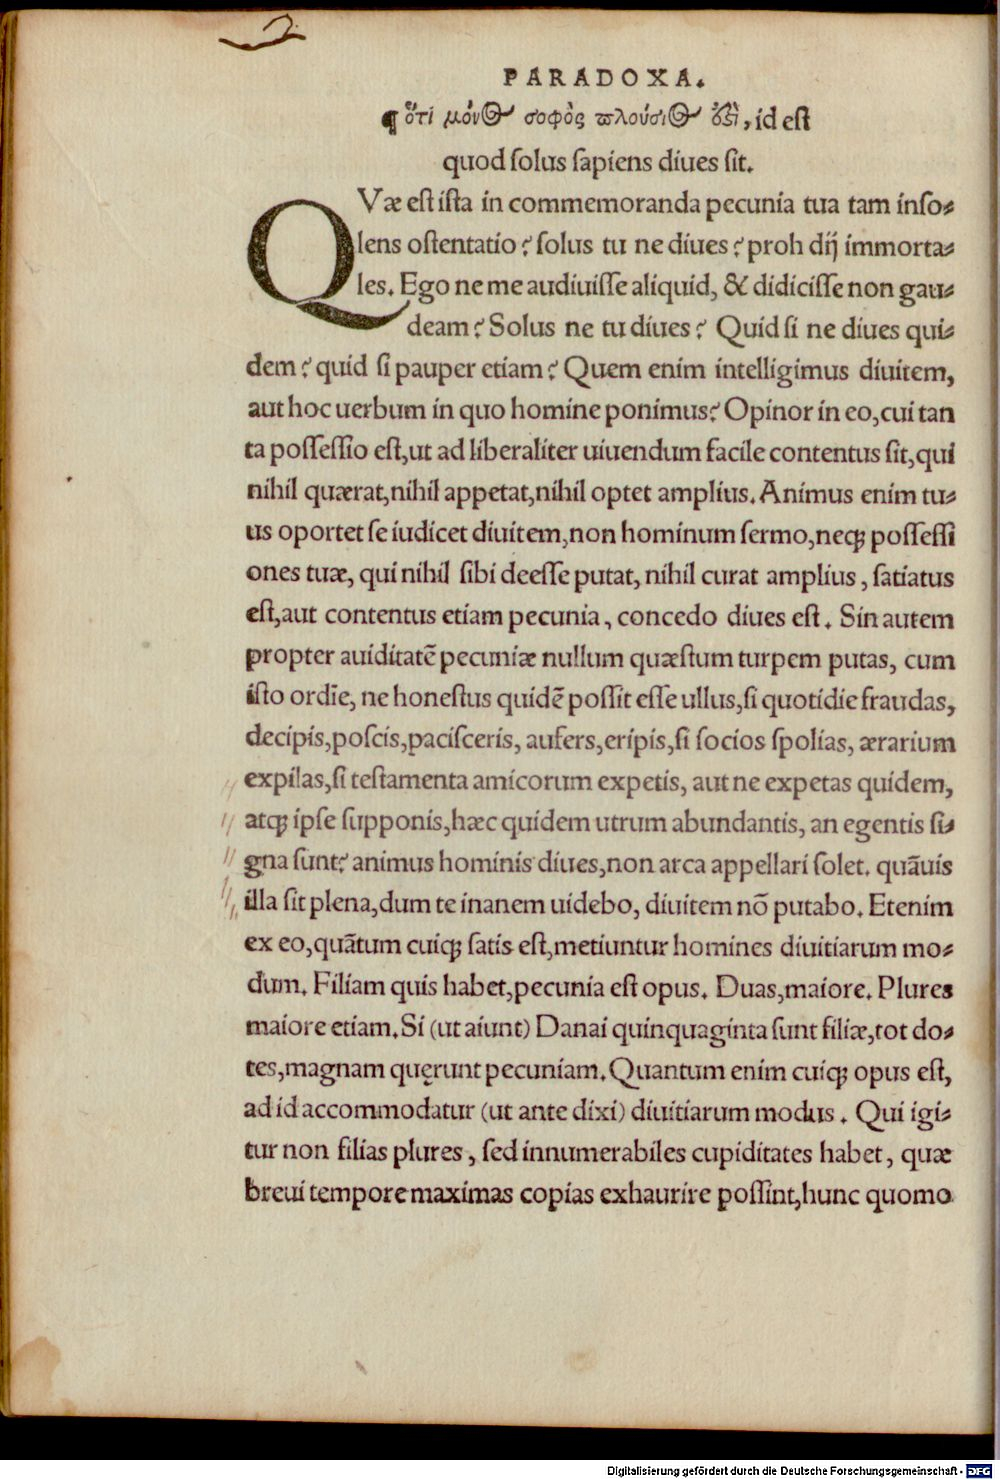 PARADOXA.
¶ ὅτι μόνος σοφὸς πλούσιος ἐστὶ, id est
quod ſolus ſapiens diues ſit.
QVæ est iſta in commemoranda pecunia tua tam inſo-
lens oſtentatio? ſolus tu ne diues? proh dij immorta-
les. Ego ne me audiuiſſe aliquid, & didiciſſe non gau-
deam? Solus ne tu diues? Quid ſi ne diues qui-
dem? quid ſi pauper etiam? Quem enim intelligimus diuitem,
aut hoc uerbum in quo homine ponimus? Opinor in eo, cui tan
ta poſſeſſio eſt, ut ad liberaliter uiuendum facile contentus ſit, qui
nihil quærat, nihil appetat, nihil optet amplius. Animus enim tu-
us oportet ſe iudicet diuitem, non hominum ſermo, neqꝫ poſſeſſi
ones tuæ, qui nihil ſibi deeſſe putat, nihil curat amplius, ſatiatus
eſt, aut contentus etiam pecunia, concedo diues eſt. Sin autem
propter auiditatē pecuniæ nullum quæſtum turpem putas, cum
iſto ordīe, ne honeſtus quidē poſſit eſſe ullus, ſi quotidie fraudas,
decipis, poſcis, paciſceris, aufers, eripis, ſi ſocios ſpolias, ærarium
expilas, ſi teſtamenta amicorum expetis, aut ne expetas quidem,
atqꝫ ipſe ſupponis, hæc quidem utrum abundantis, an egentis ſi-
gna ſunt? animus hominis diues, non arca appellari ſolet. quāuis
illa ſit plena, dum te inanem uidebo, diuitem nō putabo. Etenim
ex eo, quātum cuiqꝫ ſatis eſt, metiuntur homines diuitiarum mo-
dum. Filiam quis habet, pecunia eſt opus. Duas, maiore. Plures
maiore etiam. Si (ut aiunt) Danai quinquaginta ſunt filiæ, tot do-
tes, magnam quęrunt pecuniam. Quantum enim cuiqꝫ opus eſt,
ad id accommodatur (ut ante dixi) diuitiarum modus. Qui igi-
tur non filias plures, ſed innumerabiles cupiditates habet, quæ
breui tempore maximas copias exhaurire poſſint, hunc quomo
Digitalisierung gefördert durch die Deutsche Forschungsgemeinschaft - DFG